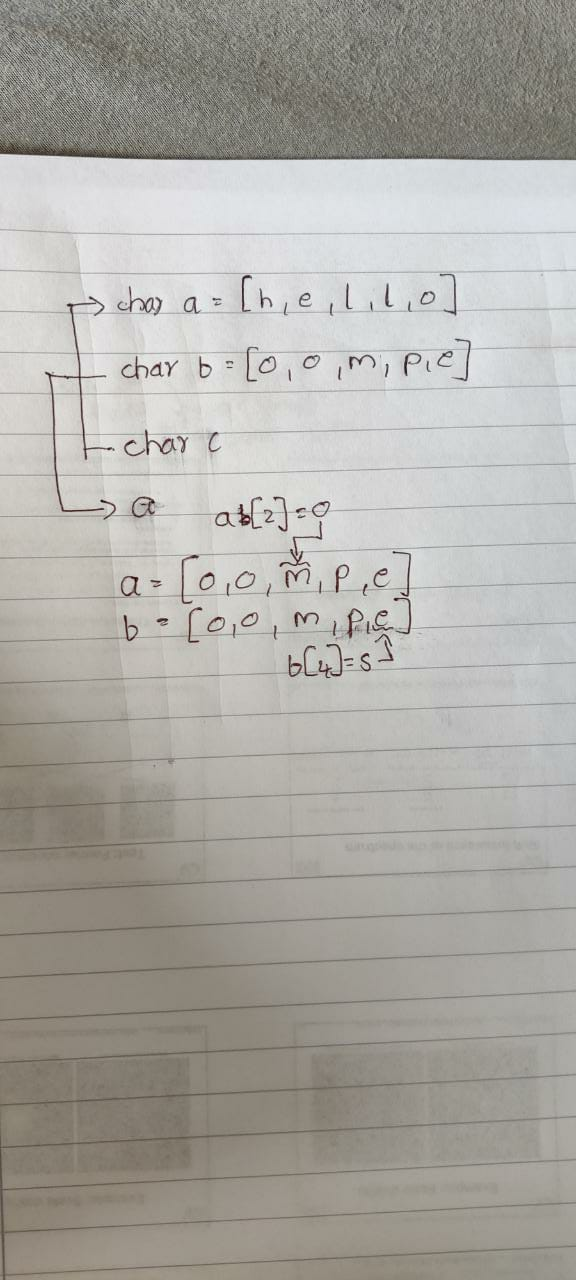 char a = [h, e, l, l, o]
char b = [o, o, m, p, e]
char c
a a[2] = o
a = [o, o, m, p, e]
b = [o, o, m, p, e]
b[4] = s